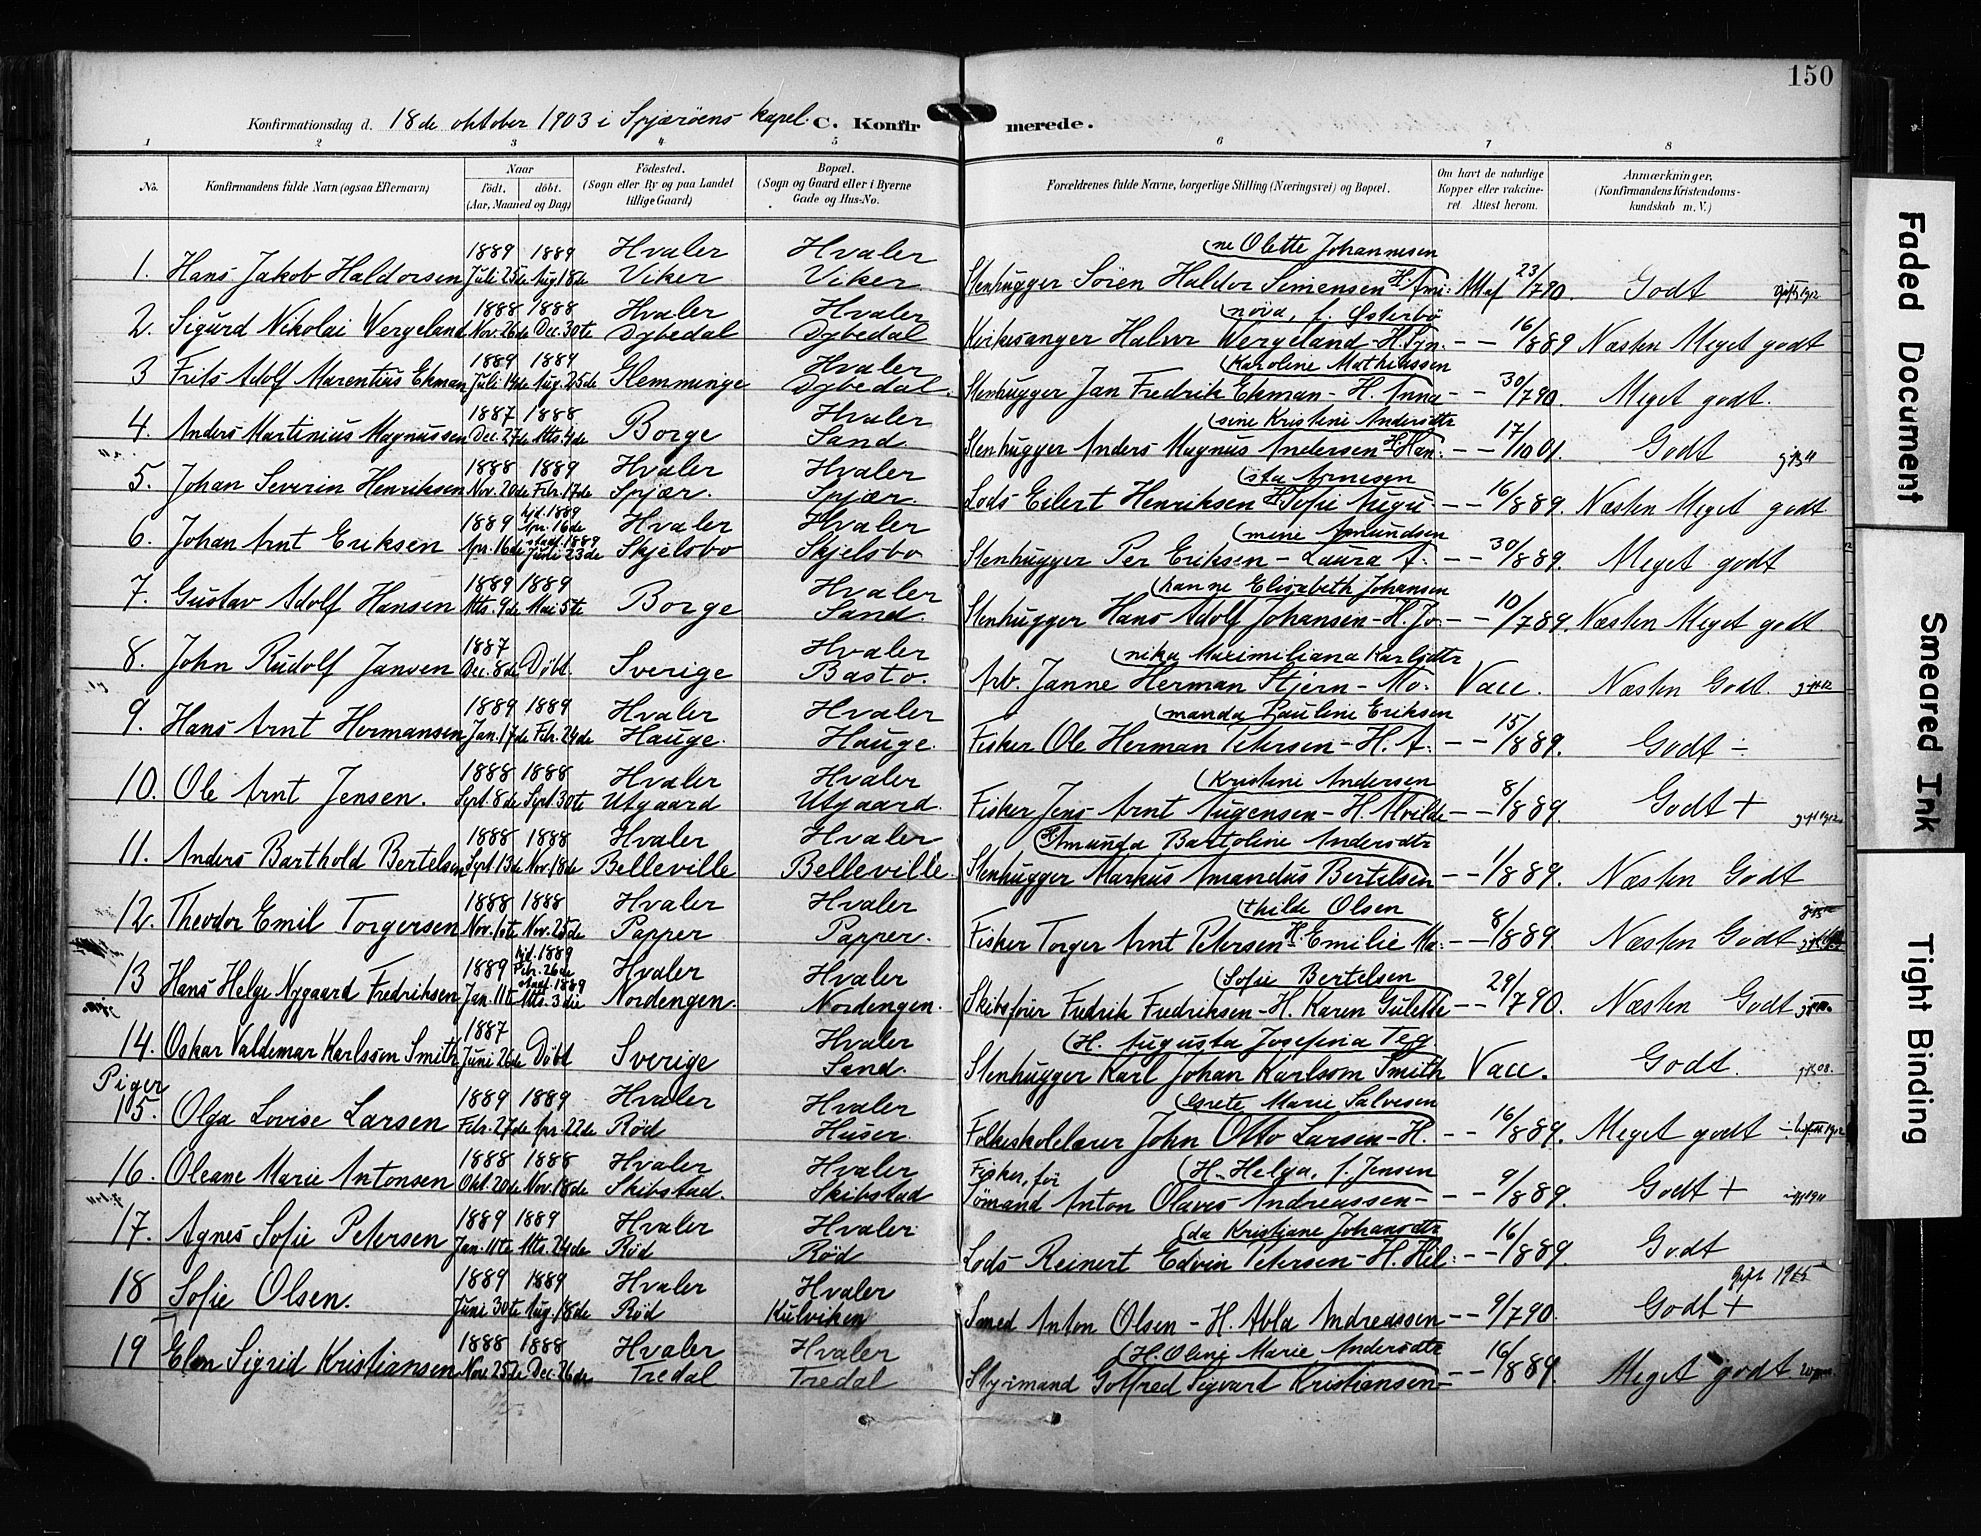 150
Konfirmationsdag d. 18de oktober 1903 i Spjærøens kapel. C. Konfirmerede.
1 2 3 4 5 6 7 8
No. Konfirmandens fulde Navn (ogsaa Efternavn) Naar født. døbt. (Aar, Maaned og Dag) Fødested. (Sogn eller By og paa Landet tillige Gaard) Bopæl. (Sogn og Gaard eller i Byerne Gade og Hus-No. Forældrenes fulde Navne, borgerlige Stilling (Næringsvei) og Bopæl. Om havt de naturlige Kopper eller vaccineret. Attest herom. Anmærkninger, (Konfirmandens Kristendomskundskab m. V.)
1889 1889 Hvaler Hvaler (ne Olette Johannesen
1. Hans Jakob Haldorsen Juli 25de Aug. 18de Viker Viker Stenhugger Sören Haldor Simensen H. Ami: Att af 23/7 90. Godt gift 1912
1888 1888 Hvaler Hvaler (növa, f. Østerbö
2. Sigurd Nikolai Wergeland Nov. 26de Dec. 30te Dybedal Dybedal Kirkesanger Halvor Wergeland - H. Syn: - - 16/8 89 Næsten Meget godt
1889 1889 Hvaler (Karoline Mathiassen
3 Frits Adolf Marentius Ekman Juli 14de Aug. 25de Glemminge Dybedal. Stenhugger Jan Fredrik Ekman - H. Anna - - 30/7 90. Meget godt.
1887 1888 Hvaler (sine Kristine Andersdtr
4. Anders Martinius Magnussen Dec. 27de Mts. 4de Borge Sand Stenhugger Anders Magnus Andersen H. Han: - - 17/10 01. Godt gift 11
1888 1889 Hvaler Hvaler (sta Arnesen
5. Johan Severin Henriksen Nov. 20de Febr. 17de Spjær. Spjær. Lods Eilert Henriksen H. Sofie Augu: - - 16/8 89. Næsten Meget godt
1889 hjd. 1889 Apr. 16de Hvaler Hvaler (mine Amundsen
6. Johan Arnt Eriksen Apr. 16de stadf. 1889 Juni 23de Skjelsbo Skjelsbo Stenhugger Per Eriksen - Laura A: - - 30/8 89. Meget godt
1889 1889 Hvaler (hanne Elisabeth Johansen
7. Gustav Adolf Hansen Mts. 9de Mai 5te Borge Sand. Stenhugger Hans Adolf Johansen - H. Jo: - - 10/7 89. Næsten Meget godt
1887 Hvaler (nika Maximiliana Karlsdtr
8. John Rudolf Janven Dec. 8de Döbt. Sverige Basto. Arb. Janne Herman Stjern - Mo: Vacc. Næsten Godt.
1889 1889 Hvaler Hvaler (manda Pauline Eriksen
9. Hans Arnt Hermansen Jan. 17de Febr. 24de Hauge. Hauge. Fisker Ole Herman Petersen - H. A: - - 15/8 89. Godt -
1888 1888 Hvaler Hvaler (Kristine Andersen
10. Ole Arnt Jensen. Sept. 8de Sept 30te Utgaard Utgaard. Fisker Jens Arnt Augensen - H. Alvilde - - 8/8 89. Godt + gift 1912
1888 1888 Hvaler Hvaler (H. Amunda Bartoline Andersdtr
11. Anders Barthold Bertelsen Sept 13de Nov. 18de Belleville Belleville. Stenhugger Markus Amandus Bertelsen - - 1/8 89. Næsten Godt
1888 1888 Hvaler Hvaler (thilde Olsen
12. Theodor Emil Torgersen Nov. 1ste Nov. 25de Papper Papper. Fisker Torger Arnt Petersen H. Emilie Ma: - - 8/8 89 Næsten Godt
1889 hjd. 1889 Febr. 26de Hvaler Hvaler (Sofie Bertelsen
13 Hans Helge Nygaard Fredriksen Jan. 11te stadf. 1889 Mts. 3die Nordengen. Nordengen. Skibsfører Fredrik Fredriksen - H. Karen Gulette - - 29/7 90. Næsten Godt
1887 Hvaler (H. Augusta Josefina Teg
14. Oskar Valdemar Karlsson Smith Juni 26de Döbt Sverige Sand. Stenhugger Karl Johan Karlsson Smith Vacc. Godt. gift 08.
Piger
1889 1889 Hvaler Hvaler (Grete Marie Salvesen
15. Olga Lovise Larsen Febr. 27de Apr. 22de Rød Huser. Folkeskolelærer John Otto Larsen - H. - - 16/8 89. Meget godt -
1888 1888 Hvaler Hvaler Fisker, før (H. Helga, f. Jensen
16. Oleane Marie Antonsen Okt. 20de Nov. 18de Skibstad. Skibstad Tömand Anton Olaves Andreassen - - - 9/8 89. Godt +
1889 1889 Hvaler Hvaler (da Kristiane Johansdtr
17. Agnes Sofie Petersen Jan. 11te Mts. 24de Rød Rød Lods Reinert Edvin Petersen - H. Hil: - - 16/8 89. Godt
1889 1889 Hvaler Hvaler
18 Sofie Olsen. Juni 30te Aug. 18de Rød Kulviken Smed Anton Olsen - H. Abla Andreassen - - 9/7 90. Godt +
1888 1888 Hvaler Hvaler (H. Oline Marie Andersdtr
19 Elen Sigrid Kristiansen Nov. 25de Dec. 26de Tredal Tredal Styrmand Gotfred Sigvard Kristiansen - - 16/8 89. Meget godt
Faded Document
Smeared Ink
Tight Binding